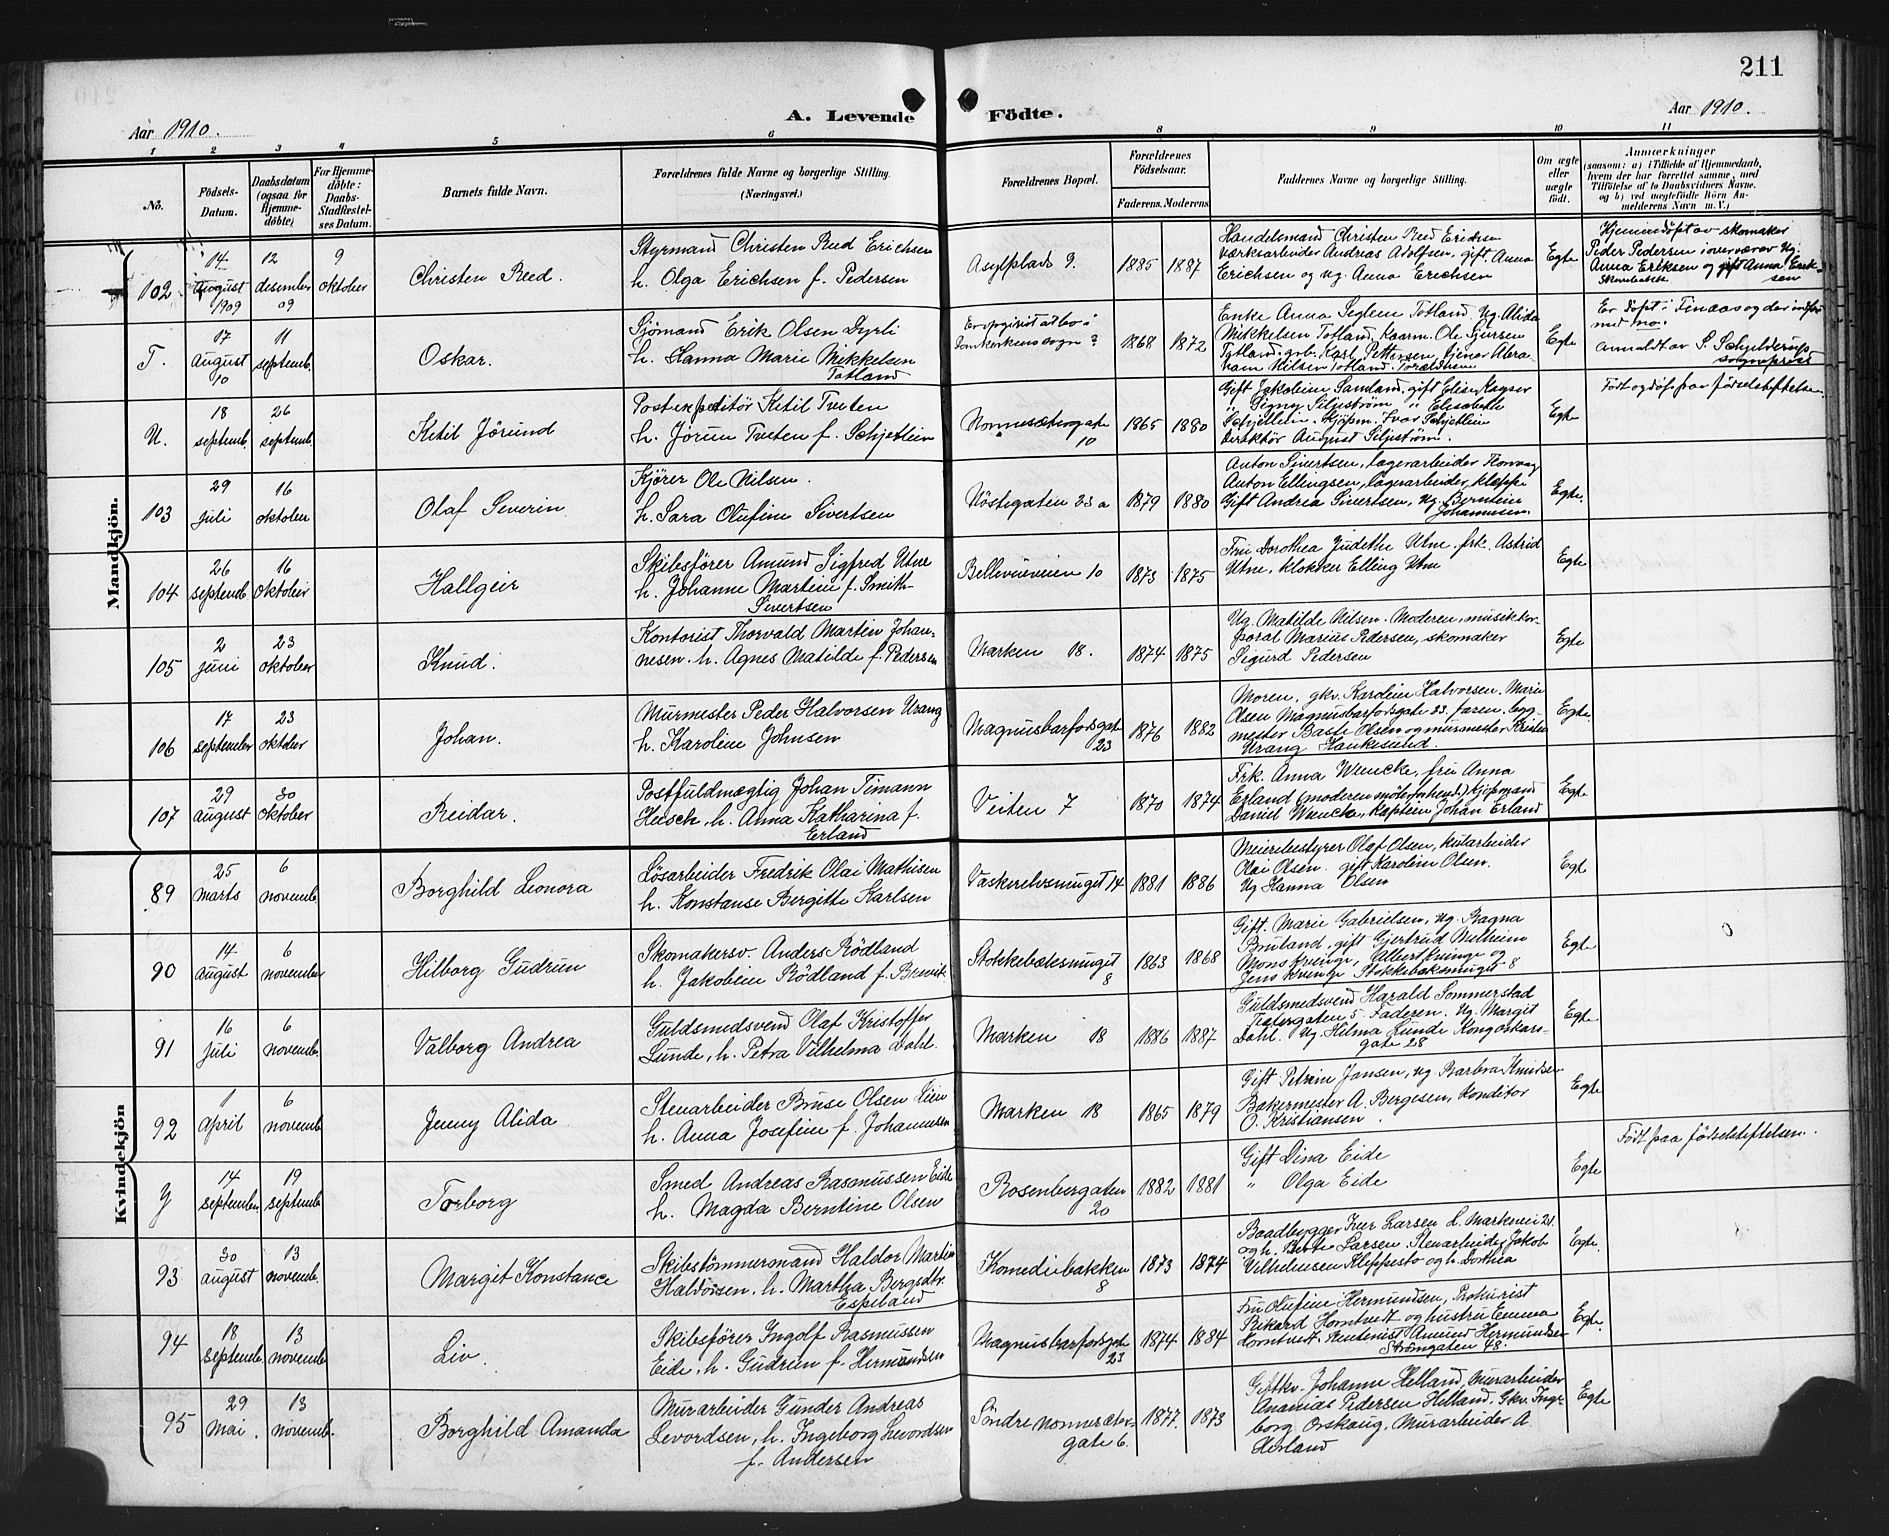 211
Aar 1910.
A. Levende Födte.
Aar 1910.
1 2 3 4 5 6 8 9 10 11
No.
Födsels-Datum.
Daabsdatum (ogsaa for Hjemmedöbte)
For Hjemmedöbte: Daabs-Stadfæstelses Datum.
Barnets fulde Navn.
Forældrenes fulde Navne og borgerlige Stilling. (Næringsvei.)
Forældrenes Bopæl.
Forældrenes Födselsaar.
Faderens. Moderens.
Faddernes Navne og borgerlige Stilling.
Om ægte eller uægte födt.
Anmærkninger
(saasom: a) i Tilfælde af Hjemmedaab, hvem der har forrettet samme, med Tilföielse af to Daabsvidners Navne, og b) ved uægtefödte Börn Anmelderens Navn m. V.)
Mandkjön.
102
14 august 1909
12 desember 09
9 oktober
Christen Reed.
Styrmand Christen Reed Erichsen
h. Olga Erichsen f. Pedersen
Asylplads 9.
1885 1887
Handelsmand Christen Reed Erichsen
Værksarbeider Andreas Adolfsen, gift Anna
Erichsen og ug. Anna Erichsen
Egte
Hjemmedøpt av skomaker
Peder Pedersen i overvær av Ug.
Anna Eriksen og gift Anna Eriksen
T.
17 august 10
11 septemb.
Oskar.
Sjömand Erik Olsen Dyrli
h. Hanna Marie Mikkelsen
Totland
Er opgivit at bo i
Domkirkens sogn?
1868 1872
Enke Anna Totland. Ug. Alida
Mikkelsen Totland, Kaarm. Ole Sjursen
Totland, grb. Karl Pettersen, tjener Abraham Nilsen Totland. Forældrene
Egte
Er døpt i Finaas og der indført
med no.
anmeldt av S. Schjelderup
sogneprest
U.
18 septemb.
26 septemb.
Ketil Jörund
Postexpeditör Ketil Tveten
h. Jorun Tveten f. Schjetlein
Nonnesætergate
10
1865 1880
Gift Jakobine Samland. gift Elise Kayser
" Signy Siljeström " Elisabeth
Schjetlein. Kjøpm. Ivar Schjetlein
direktör August Siljeström.
Egte
Født og døpt paa fødselstiftelsen.
103
29 juli
16 oktober
Olaf Severin
Kjörer Ole Nilsen.
h. Sara Olufine Sivertsen
Nöstegaten 23 a
1879 1880
Anton Sivertsen, lagerarbeider
Anton Ellingsen, lagerarbeider,
Gift Andrea Sivertsen, ug. Berntine
Johannesen.
Egte.
104
26 septemb.
16 oktober
Hallgeir
Skibsförer Amund Sigfred Utne
h. Johanne Martine f. Smith-
Sivertsen
Bellevueveien 10
1873 1875
Fru Dorothea Judethe Utne. frk. Astrid
Utne, klokker Elling Utne
Egte
105
2 juni
23 oktober
Knud.
Kontorist Thorvald Martin Johan-
nesen. h. Agnes Matilde f. Pedersen
Marken 18.
1874 1875
Ug. Matilde Nilsen. Moderen, musikkor-
poral Marius Pedersen, skomaker
Sigurd Pedersen
Egte
106
17 september
23 oktober
Johan.
Murmester Peder Halvorsen Urang
h. Karoline Johnsen
Magnusbarfodsgate
23
1876 1882
Moren, gkv. Karoline Halvorsen. Marie
Olsen Magnusbarfodsgate 23. faren, bygg-
mester Olsen og murmester Kristen
Urang Haukesund.
Egte.
107
29 august
30 oktober
Reidar.
Postfuldmægtig Johan Timann
Heusch, h. Anna Katharina f.
Erland
Veiten 7
1870 1874
Frk. Anna Wencke, fru Anna
Erland (moderen) kjøpmand
Daniel Wencke, kaptein Johan Erland
Egte
Kvindekjön
89
25 marts
6 novemb.
Borghild Leonora
Lösarbeider Fredrik Olai Mathisen
h. Konstanse Bergitte Karlsen
Vaskerelvsmuget 14
1881 1886
Meieribestyrer Olaf Olsen, kularbeider
Olai Olsen. gift Karoline Olsen.
Ug Hanna Olsen
Egte
90
14 august
6 november
Hilborg Gudrun
Skomakersv. Anders Rödland
h. Jakobine Rödland f. Brevik
Stokkebæksmuget
8
1863 1868
Gift. Marie Gabrielsen, ug. Ragna
Bruland, gift Gjertrud Melheim
Mons Kvinge, Albert Kvinge og
Jens Kvinge Stokkebæksmuget 8
Egte
91
16 juli
6 novemb.
Valborg Andrea
Guldsmedsvend Olaf Kristoffer
Lunde, h. Petra Vilhelma Dahl.
Marken 18
1886 1887
Guldsmedsvend Harald Sommerstad
Teatergaten 5. Faderen. Ug. Margit
Dahl. Ug. Hilma Lunde Kong oskars-
gate 28
Egte.
92
1 april
6 novemb.
Jenny Alida.
Stenarbeider Bruse Olsen Lien
h. Anna Josefine f. Johannesen
Marken 18
1865 1879
Gift Petrine Jansen, ug Barbra Knudsen
Bakermester A. Bergesen, Konditor
O. Kristiansen.
Egte
Y
14 september
19 septemb.
Torborg
Smed Andreas Rasmussen Eide
h. Magda Berntine Olsen
Rosenbergaten
20
1882 1881
Gift Dina Eide
" Olga Eide
Egte
Født paa fødselstiftelsen.
93
30 august
13 novemb.
Margit Konstance
Skibstömmermand Haldor Martin
Haldorsen, h. Martha Bergsdtr
Espeland
Komediebakken
8
1873 1874
Baadbygger Iver Larsen l. Markevei 21.
og h. Berte Larsen. Stenarbeider Jakob
Vilhelmsen Kleppestø og h. Dorthea
Egte.
94
18 septemb.
13 novemb.
Liv.
Skibsförer Ingolf Rasmussen
Eide, h. Gudrun f. Hermundsen
Magnusbarfodsgate
23
1874 1884
Fru Olufine Hermundsen, Prokurist
Rikard Horntvedt og hustru Emma
Horntvedt. Rentenist Amund Hermundsen
Strömgaten 48.
Egte.
95
29 mai.
13 novemb.
Borghild Amanda
Murarbeider Gunder Andreas
Levordsen, h. Ingeborg Levordsen
f. Andersen
Söndre Nonnesæter-
gate 6.
1877. 1873
Giftkv. Johanne Helland, Murarbeider
Ananias Pedersen Helland, Gkv. Inge-
borg Orskaug. Murarbeider A.
Horland
Egte